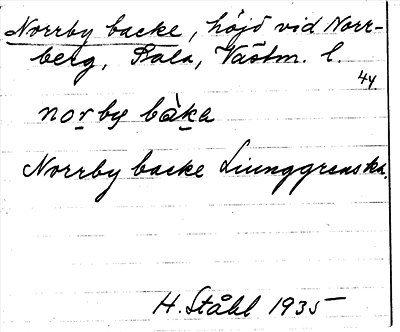 Norrby backe, höjd vid Norr-
berg, Sala, Västm. l.
44
norby bàka
Norrby backe Liunggrenska.
H. Ståhl 1935